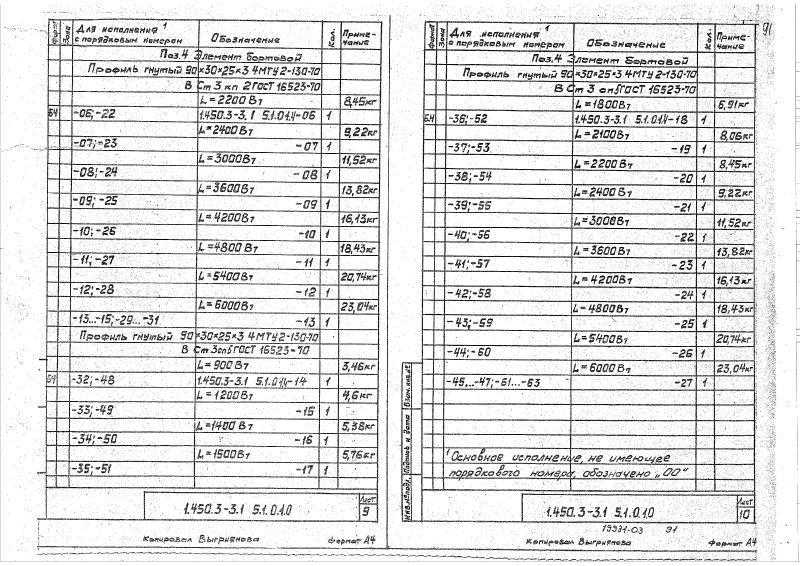 Форм. Зона Для исполнения ¹ с порядковым номером Обозначение Кол. Приме-чание
Поз.4 Элемент бортовой
Профиль гнутый 90×30×25×3 4МТУ2-130-70
В Ст 3 кп 2 ГОСТ 16523-70
L=2200 Вт 8,45кг
БЧ -06;-22 1.450.3-3.1 5.1.0.1.4-06 1
L=2400 Вт 9,22кг
-07;-23 -07 1
L=3000 Вт 11,52кг
-08;-24 -08 1
L=3600 Вт 13,82кг
-09;-25 -09 1
L=4200 Вт 16,13кг
-10;-26 -10 1
L=4800 Вт 18,43кг
-11;-27 -11 1
L=5400 Вт 20,74кг
-12;-28 -12 1
L=6000 Вт 23,04кг
-13...-15;-29...-31 -13 1
Профиль гнутый 90×30×25×3 4МТУ2-130-70
В Ст 3сп5 ГОСТ 16523-70
L=900 Вт 3,46кг
БЧ -32;-48 1.450.3-3.1 5.1.0.1.4-14 1
L=1200 Вт 4,6кг
-33;-49 -15 1
L=1400 Вт 5,38кг
-34;-50 -16 1
L=1500 Вт 5,76кг
-35;-51 -17 1
1.450.3-3.1 5.1.0.1.0 Лист 9
Копировал Выгриянова Формат А4
91
Форм. Зона Для исполнения ¹ с порядковым номером Обозначение Кол. Приме-чание
Поз.4 Элемент бортовой
Профиль гнутый 90×30×25×3 4МТУ2-130-70
В Ст 3 сп5 ГОСТ 16523-70
L=1800 Вт 6,91кг
БЧ -36;-52 1.450.3-3.1 5.1.0.1.4-18 1
L=2100 Вт 8,06кг
-37;-53 -19 1
L=2200 Вт 8,45кг
-38;-54 -20 1
L=2400 Вт 9,22кг
-39;-55 -21 1
L=3000 Вт 11,52кг
-40;-56 -22 1
L=3600 Вт 13,82кг
-41;-57 -23 1
L=4200 Вт 16,13кг
-42;-58 -24 1
L=4800 Вт 18,43кг
-43;-59 -25 1
L=5400 Вт 20,74кг
-44;-60 -26 1
L=6000 Вт 23,04кг
-45...-47;-61...-63 -27 1
¹ Основное исполнение, не имеющее
порядкового номера, обозначено „00“
Инв.№подл. Подпись и дата Взам.инв.№
1.450.3-3.1 5.1.0.1.0 Лист 10
19931-03 91
Копировал Выгриянова Формат А4